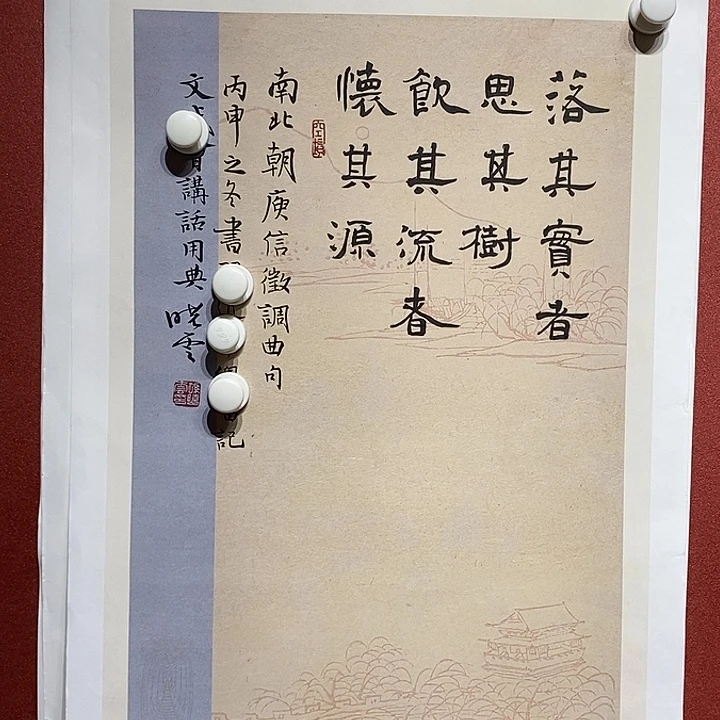 落其實者
思其樹
飲其流者
懷其源
南北朝庾信徵調曲句
丙申之冬書記
文講話用典
曉雲